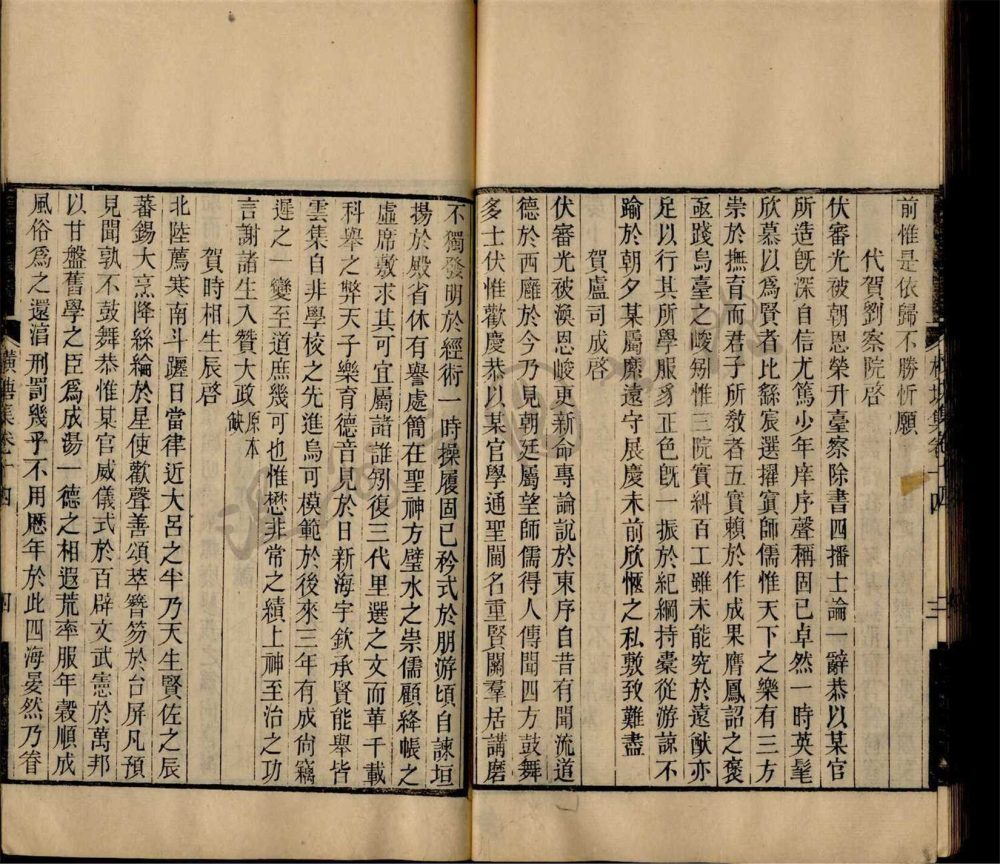 前惟是依歸不勝忻願
代賀劉察院啓
伏審光被朝恩榮升臺察除書四播士論一辭恭以某官
所造旣深自信尤篤少年庠序聲稱固已卓然一時英髦
欣慕以爲賢者比繇宸選擢寘師儒惟天下之樂有三方
崇於撫育而君子所敎者五實賴於作成果膺鳳詔之褒
亟踐烏臺之峻矧惟三院實糾百工雖未能究於遠猷亦
足以行其所學服豸正色旣一振於紀綱持橐從游諒不
踰於朝夕某屬縻遠守展慶未前欣愜之私敷致難盡
賀盧司成啓
伏審光被渙恩峻更新命專論說於東序自昔有聞流道
德於西廱於今乃見朝廷屬望師儒得人傳聞四方鼓舞
多士伏惟歡慶恭以某官學通聖閫名重賢關羣居講磨
橫塘集卷十四
三
不獨發明於經術一時操履固已矜式於朋游頃自諫垣
揚於殿省休有譽處簡在聖神方璧水之崇儒顧絳帳之
虛席敷求其可宜屬諸誰矧復三代里選之文而革千載
科舉之弊天子樂育德音見於日新海宇欽承賢能舉皆
雲集自非學校之先進烏可模範於後來三年有成尙竊
遲之一變至道庶幾可也惟懋非常之績上神至治之功
言謝諸生入贊大政原本缺
賀時相生辰啓
北陸萬寒南斗躔日當律近大呂之半乃天生賢佐之辰
蕃錫大烹降絲綸於星使歡聲善頌萃簪笏於台屏凡預
見聞孰不鼓舞恭惟某官威儀式於百辟文武憲於萬邦
以甘盤舊學之臣爲成湯一德之相遐荒率服年穀順成
風俗爲之還湻刑罰幾乎不用歷年於此四海晏然乃眷
橫塘集卷十四
四